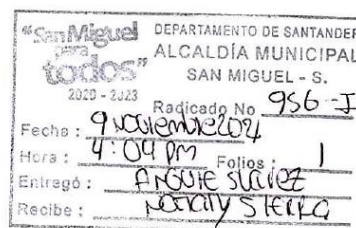 "San Miguel
para
todos"
2020 - 2023
DEPARTAMENTO DE SANTANDER
ALCALDÍA MUNICIPAL
SAN MIGUEL - S.
Radicado No 956-I
Fecha: 9 noviembre 202
Hora: 4:04 pm Folios: 1
Entregó: Angie Suarez
Recibe: